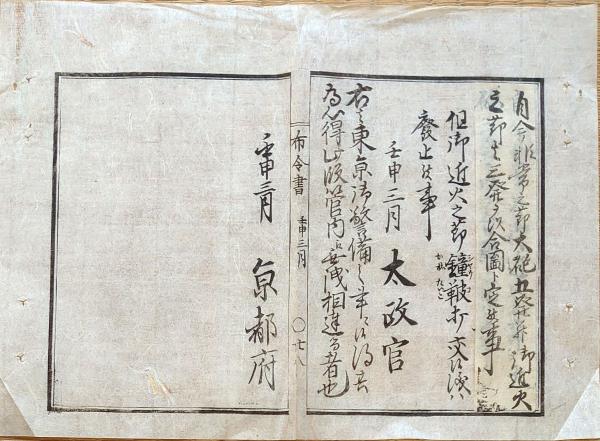 自今非常之節大砲五發并御近火
之節は三發ヲ以合圖ト定候事
但御近火之節鐘鞁打交候儀ハ
廢止候事
壬申三月 太政官
右之東京御警備之 ニ候得共
為心得此段管内ニ無洩相達る者也
布令書 壬申三月 〇七八
壬申三月 京都府